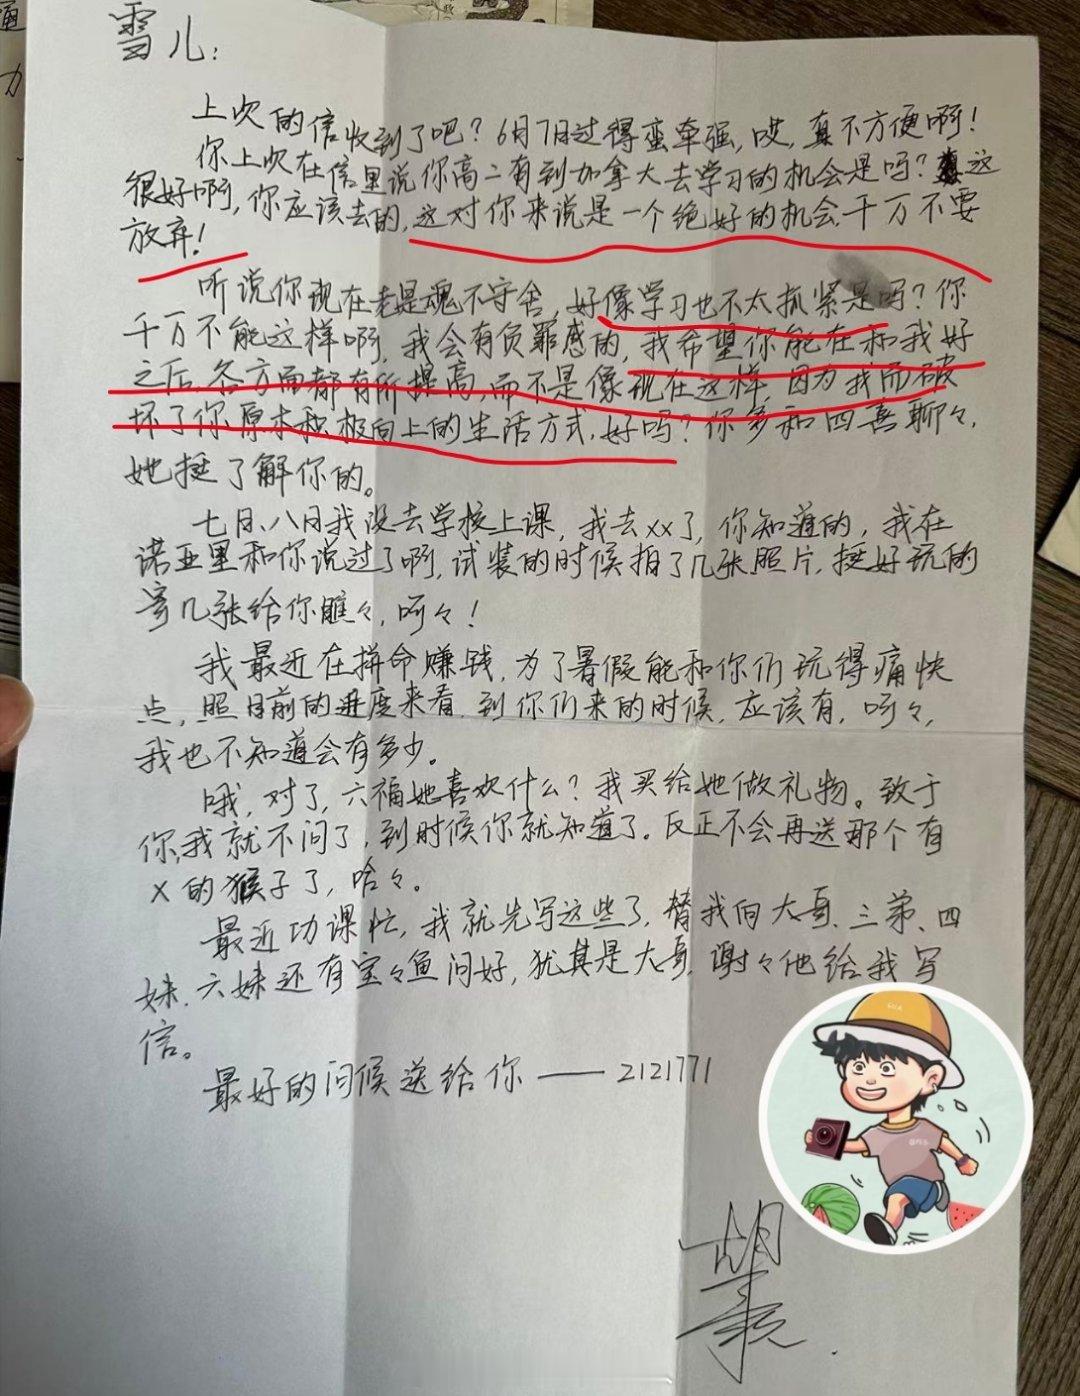 雪儿：
上次的信收到了吧？6月7日过得蛮牵强，哎，真不方便啊！
你上次在信里说你高二有到加拿大去学习的机会是吗？这
很好啊，你应该去的，这对你来说是一个绝好的机会千万不要
放弃！
听说你现在老是魂不守舍，好像学习也不太抓紧是吗？你
千万不能这样啊，我会有负罪感的，我希望你能在和我好
之后，各方面都有所提高，而不是像现在这样，因为我而破
坏了你原本积极向上的生活方式，好吗？你多和四喜聊々，
她挺了解你的。
七月、八月我没去学校上课，我去xx了，你知道的，我在
诺亚里和你说过了啊，试装的时候拍了几张照片，挺好玩的
寄几张给你瞧々，呵々！
我最近在拼命赚钱，为了暑假能和你们玩得痛快
点，照目前的进度来看，到你们来的时候，应该有，呵々，
我也不知道会有多少。
哦，对了，六福她喜欢什么？我买给她做礼物。致于
你，我就不问了，到时候你就知道了。反正不会再送那个有
X的猴子了，哈々。
最近功课忙，我就先写这些了，替我向大哥、三弟、四
妹、六妹还有宝々鱼问好，犹其是大哥，谢々他给我写
信。
最好的问候送给你——2121771
胡